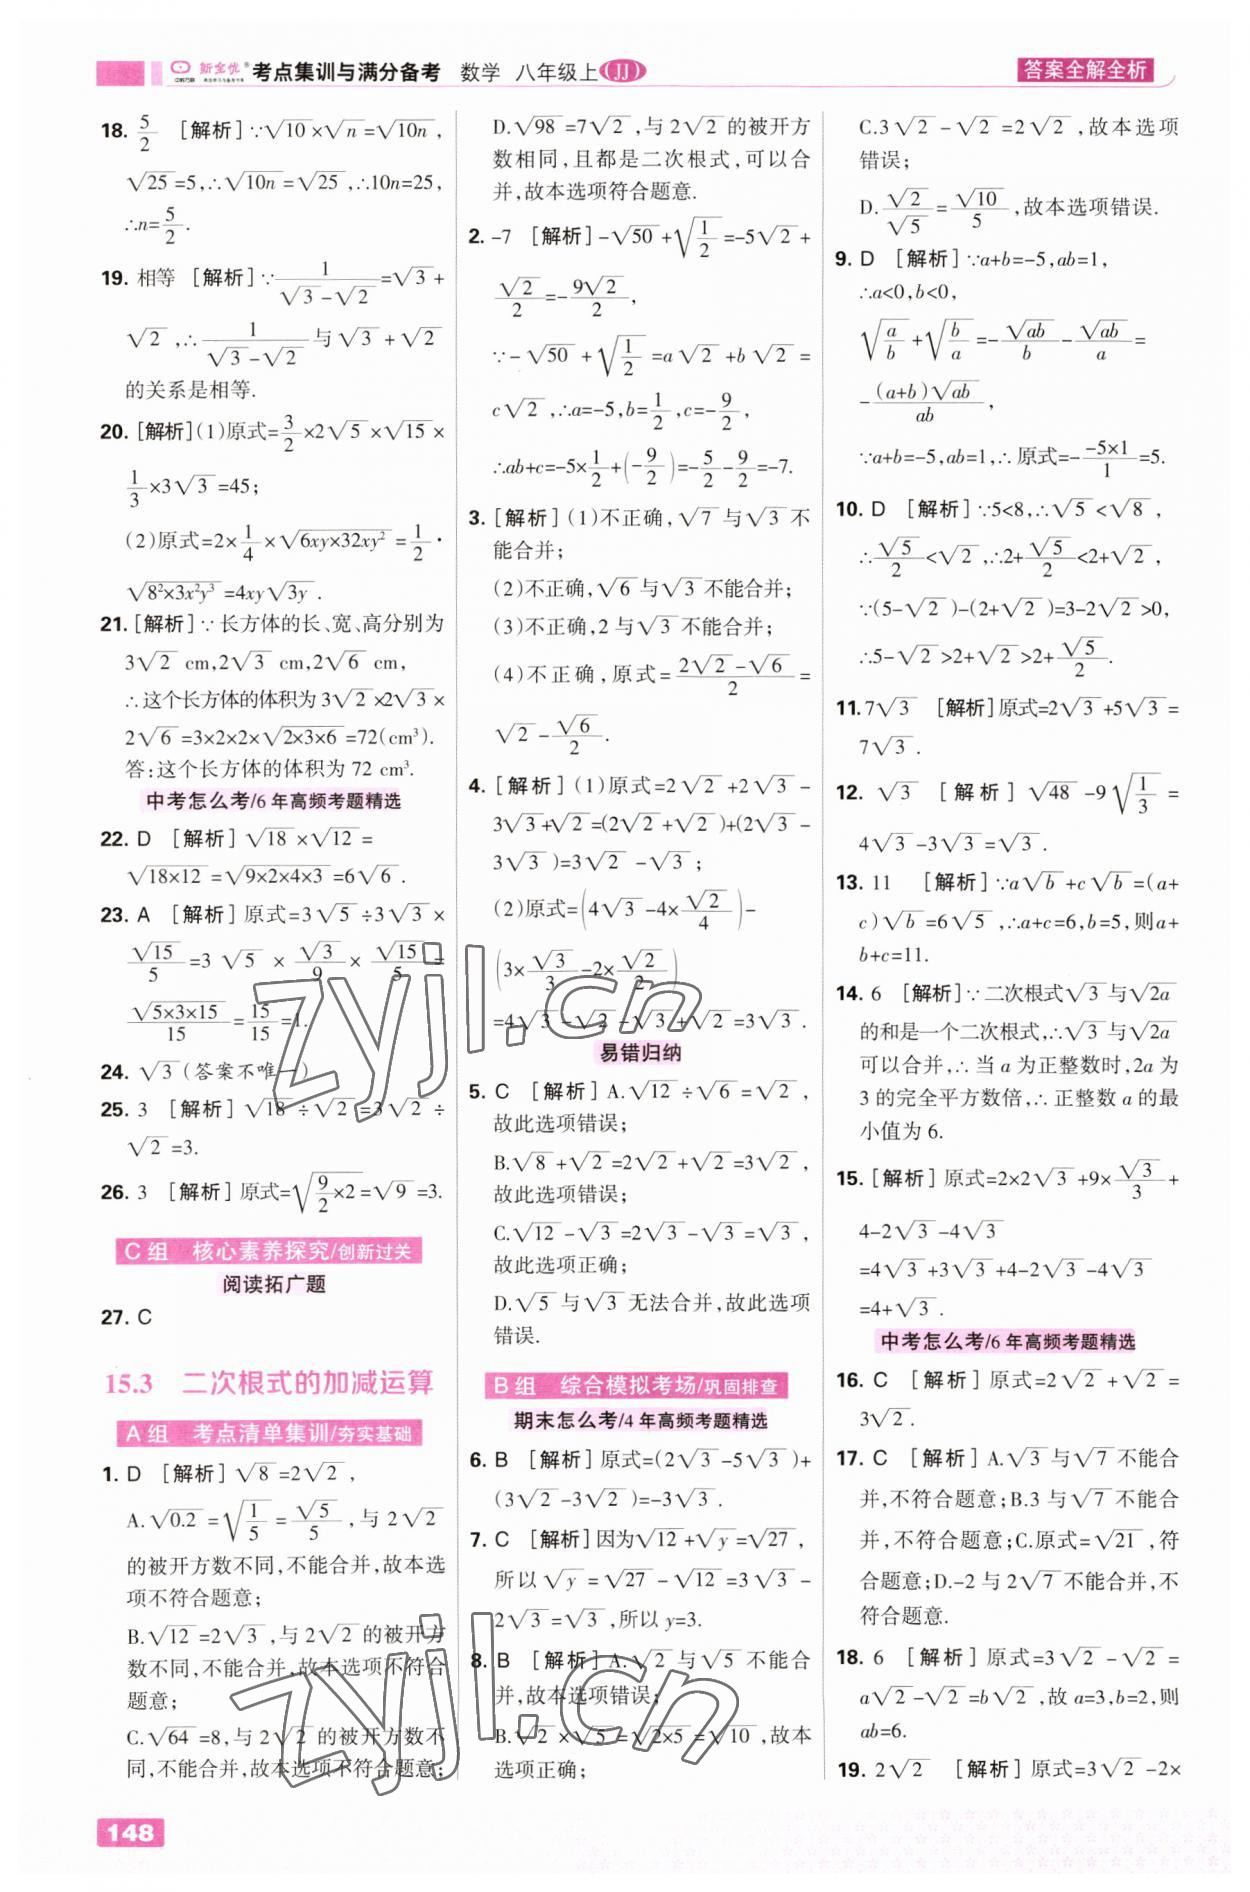 新全优® 考点集训与满分备考 数学 八年级上 (JJ)
答案全解全析
18. 5/2 [解析]∵√10×√n=√10n,
√25=5,∴√10n=√25,∴10n=25,
∴n=5/2.
19. 相等 [解析]∵1/(√3-√2)=√3+
√2,∴1/(√3-√2)与√3+√2
的关系是相等.
20. [解析](1)原式=3/2×2√5×√15×
1/3×3√3=45;
(2)原式=2×1/4×√(6xy×32xy²)=1/2·
√(8²×3x²y³)=4xy√3y.
21. [解析]∵长方体的长、宽、高分别为
3√2 cm,2√3 cm,2√6 cm,
∴这个长方体的体积为3√2×2√3×
2√6=3×2×2×√(2×3×6)=72(cm³).
答:这个长方体的体积为72 cm³.
中考怎么考/6年高频考题精选
22. D [解析]√18×√12=
√(18×12)=√(9×2×4×3)=6√6.
23. A [解析]原式=3√5÷3√3×
√15/5=3√5×√3/9×√15/5=
√(5×3×15)/15=15/15=1.
24. √3(答案不唯一)
25. 3 [解析]√18÷√2=3√2÷
√2=3.
26. 3 [解析]原式=√(9/2×2)=√9=3.
C组 核心素养探究/创新过关
阅读拓广题
27. C
15.3 二次根式的加减运算
A组 考点清单集训/夯实基础
1. D [解析]√8=2√2,
A.√0.2=√(1/5)=√5/5,与2√2
的被开方数不同,不能合并,故本选
项不符合题意;
B.√12=2√3,与2√2的被开方
数不同,不能合并,故本选项不符合
题意;
C.√64=8,与2√2的被开方数不
同,不能合并,故本选项不符合题意;
148
D.√98=7√2,与2√2的被开方
数相同,且都是二次根式,可以合
并,故本选项符合题意.
2. -7 [解析]-√50+√(1/2)=-5√2+
√2/2=-9√2/2,
∵-√50+√(1/2)=a√2+b√2=
c√2,∴a=-5,b=1/2,c=-9/2,
∴ab+c=-5×1/2+(-9/2)=-5/2-9/2=-7.
3. [解析](1)不正确,√7与√3不
能合并;
(2)不正确,√6与√3不能合并;
(3)不正确,2与√3不能合并;
(4)不正确,原式=(2√2-√6)/2=
√2-√6/2.
4. [解析](1)原式=2√2+2√3-
3√3+√2=(2√2+√2)+(2√3-
3√3)=3√2-√3;
(2)原式=(4√3-4×√2/4)-
(3×√3/3-2×√2/2)
=4√3-√2-√3+√2=3√3.
易错归纳
5. C [解析]A.√12÷√6=√2,
故此选项错误;
B.√8+√2=2√2+√2=3√2,
故此选项错误;
C.√12-√3=2√3-√3=√3,
故此选项正确;
D.√5与√3无法合并,故此选项
错误.
B组 综合模拟考场/巩固排查
期末怎么考/4年高频考题精选
6. B [解析]原式=(2√3-5√3)+
(3√2-3√2)=-3√3.
7. C [解析]因为√12+√y=√27,
所以√y=√27-√12=3√3-
2√3=√3,所以y=3.
8. B [解析]A.√2与√5不能合
并,故本选项错误;
B.√2×√5=√(2×5)=√10,故本
选项正确;
C.3√2-√2=2√2,故本选项
错误;
D.√2/√5=√10/5,故本选项错误.
9. D [解析]∵a+b=-5,ab=1,
∴a<0,b<0,
√(a/b)+√(b/a)=-√ab/b-√ab/a=
-(a+b)√ab/ab,
∵a+b=-5,ab=1,∴原式=-(-5×1)/1=5.
10. D [解析]∵5<8,∴√5<√8,
∴√5/2<√2,∴2+√5/2<2+√2,
∵(5-√2)-(2+√2)=3-2√2>0,
∴5-√2>2+√2>2+√5/2.
11. 7√3 [解析]原式=2√3+5√3=
7√3.
12. √3 [解析]√48-9√(1/3)=
4√3-3√3=√3.
13. 11 [解析]∵a√b+c√b=(a+
c)√b=6√5,∴a+c=6,b=5,则a+
b+c=11.
14. 6 [解析]∵二次根式√3与√2a
的和是一个二次根式,∴√3与√2a
可以合并,∴当a为正整数时,2a为
3的完全平方数倍,∴正整数a的最
小值为6.
15. [解析]原式=2×2√3+9×√3/3+
4-2√3-4√3
=4√3+3√3+4-2√3-4√3
=4+√3.
中考怎么考/6年高频考题精选
16. C [解析]原式=2√2+√2=
3√2.
17. C [解析]A.√3与√7不能合
并,不符合题意;B.3与√7不能合
并,不符合题意;C.原式=√21,符
合题意;D.-2与2√7不能合并,不
符合题意.
18. 6 [解析]原式=3√2-√2=
a√2-√2=b√2,故a=3,b=2,则
ab=6.
19. 2√2 [解析]原式=3√2-2×
zyjl.cn
zyjl.cn